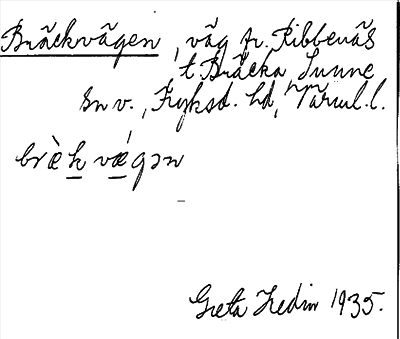 Bräckvägen, väg fr. Ribbenäs
t Bräcka, Sunne
sn v., Fryksd. hd, Värml. l.
brèk vǽgən
Greta Hedin 1935.